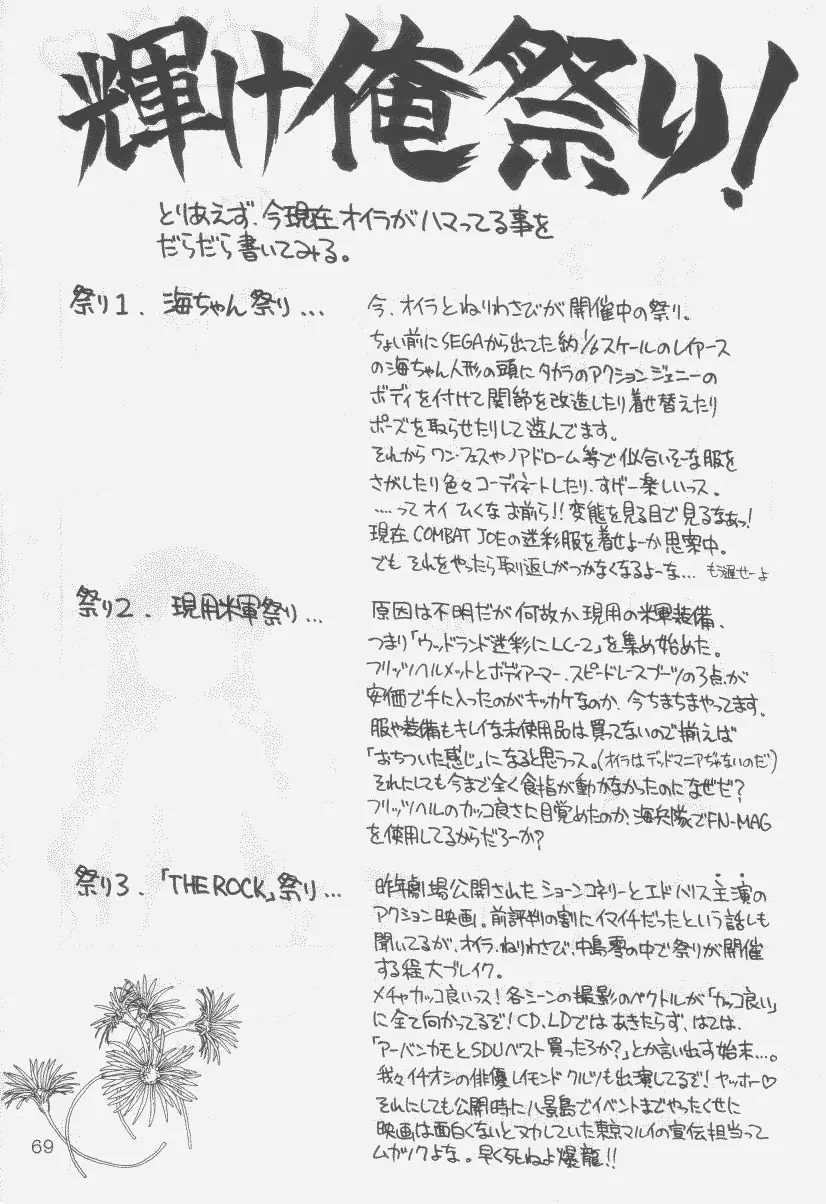 輝け俺祭り!
とりあえず、今現在オイラがハマってる事を
だらだら書いてみる。
祭り1. 海ちゃん祭り…
今、オイラとねりわさびが開催中の祭り。
ちょい前にSEGAから出てた約1/6スケールのレイアース
の海ちゃん人形の頭にタカラのアクションジェニーの
ボディを付けて関節を改造したり着せ替えたり
ポーズを取らせたりして遊んでます。
それからワンフェスやノアドローム等で似合いそーな服を
さがしたり色々コーディネートしたり、すげー楽しいっス。
……ってオイ ひくな お前ら!!変態を見る目で見るなぁっ!
現在COMBAT JOEの迷彩服を着せよーか思案中。
でも それをやったら取り返しがつかなくなるよーな… もう遅せーよ
祭り2. 現用米軍祭り…
原因は不明だが何故か、現用の米軍装備、
つまり「ウッドランド迷彩にLC-2」を集め始めた。
フリッツヘルメットとボディアーマー、スピードレースブーツの3点が
安価で手に入ったのがキッカケなのか、今ちまちまやってます。
服や装備もキレイな未使用品は買ってないので揃えば
「おちついた感じ」になると思うっス。(オイラはデッドマニアぢゃないのだ)
それにしても今まで全く食指が動かなかったのになぜだ?
フリッツヘルのカッコ良さに目覚めたのか、海兵隊でFN-MAG
を使用してるからだろーか?
祭り3. 「THE ROCK」祭り…
昨年劇場公開されたショーンコネリーとエドハリス主演の
アクション映画。前評判の割にイマイチだったという話しも
聞いてるが、オイラ、ねりわさび、中島零の中で祭りが開催
する程大ブレイク。
メチャカッコ良いっス!各シーンの撮影のベクトルが「カッコ良い」
に全て向かってるぞ!CD、LDではあきたらず、はては、
「アーバンカモとSDUベスト買ったろか?」とか言い出す始末…。
我々イチオシの俳優レイモンド クルツも出演してるぞ!ヤッホー♡
それにしても公開時に八景島でイベントまでやったくせに
映画は面白くないとヌカしていた東京マルイの宣伝担当って
ムカツクよな。早く死ねよ爆龍!!
69